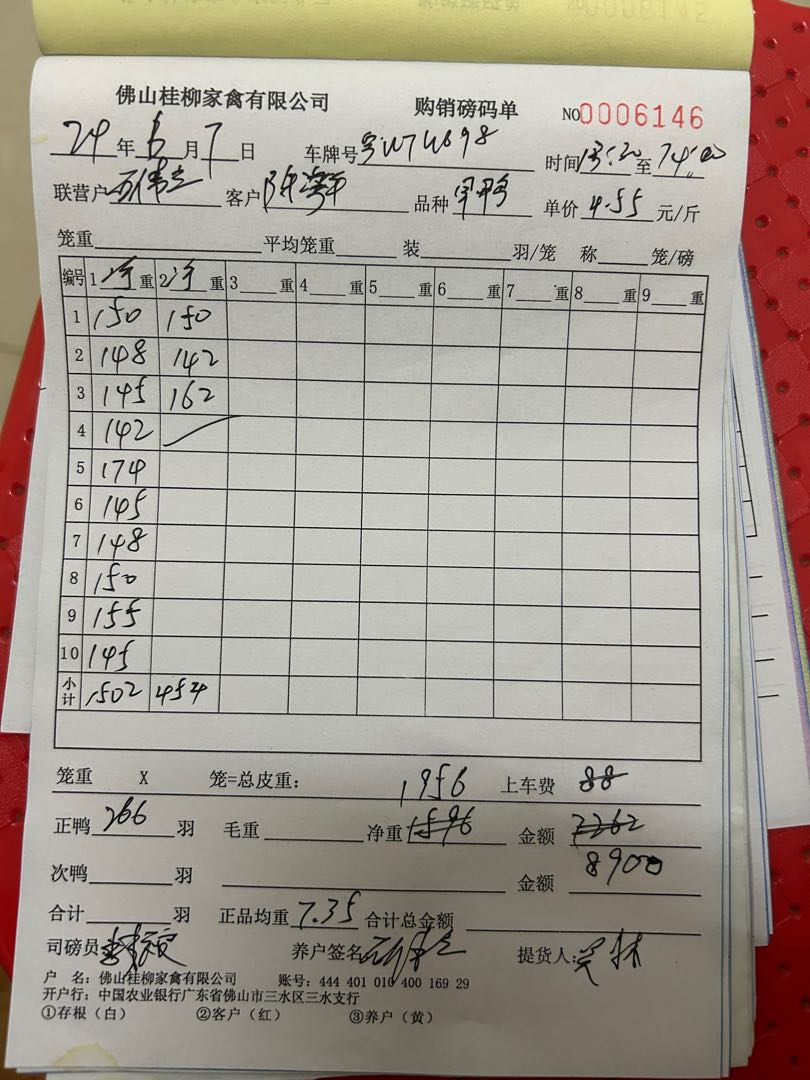 佛山桂柳家禽有限公司 购销磅码单 NO0006146
24年6月7日 车牌号 时间13:20至14:00
联营户 客户 品种 单价4.55元/斤
笼重 平均笼重 装 羽/笼 称 笼/磅
编号 1净重 2净重 3 重 4 重 5 重 6 重 7 重 8 重 9 重
1 150 150
2 148 142
3 145 162
4 142
5 174
6 145
7 148
8 150
9 155
10 145
小计 1502 454
笼重 X 笼=总皮重: 1956 上车费 88
正鸭266羽 毛重 净重1596 金额7262
8900
次鸭 羽 金额
合计 羽 正品均重7.35 合计总金额
司磅员 养户签名 提货人:
户 名: 佛山桂柳家禽有限公司 账号: 444 401 010 400 169 29
开户行: 中国农业银行广东省佛山市三水区三水支行
①存根(白) ②客户(红) ③养户(黄)